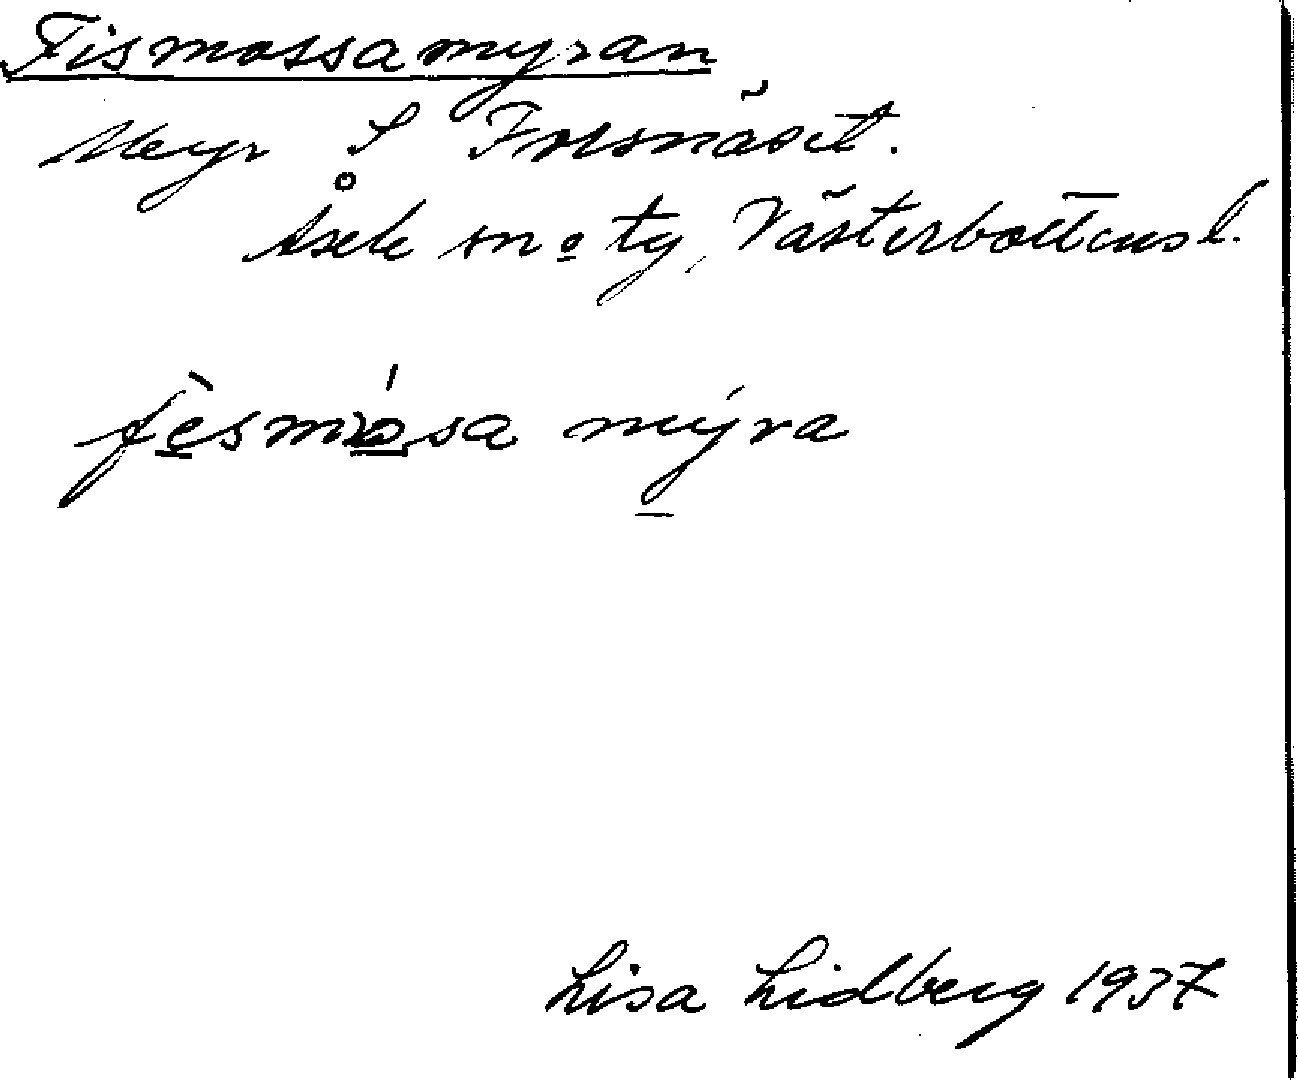 Fismossamyran
Myr S Forsnäset.
Åsele sn o tg, Västerbottens l.
fèsmósa mýra
Lisa Lidberg 1937